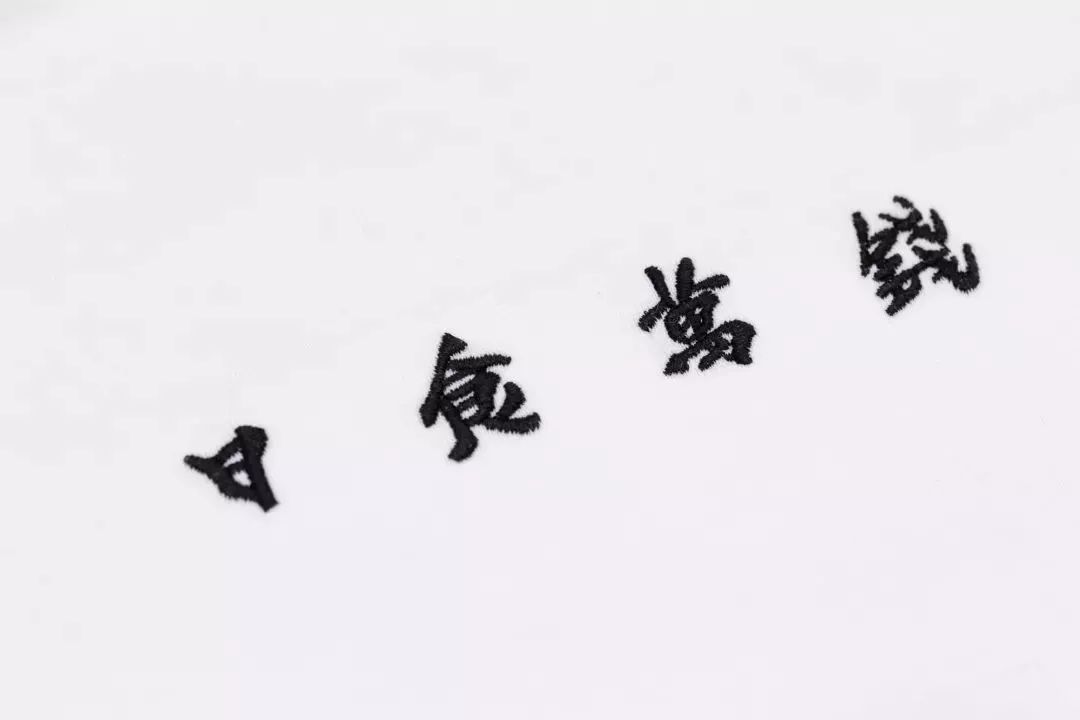 日食萬錢